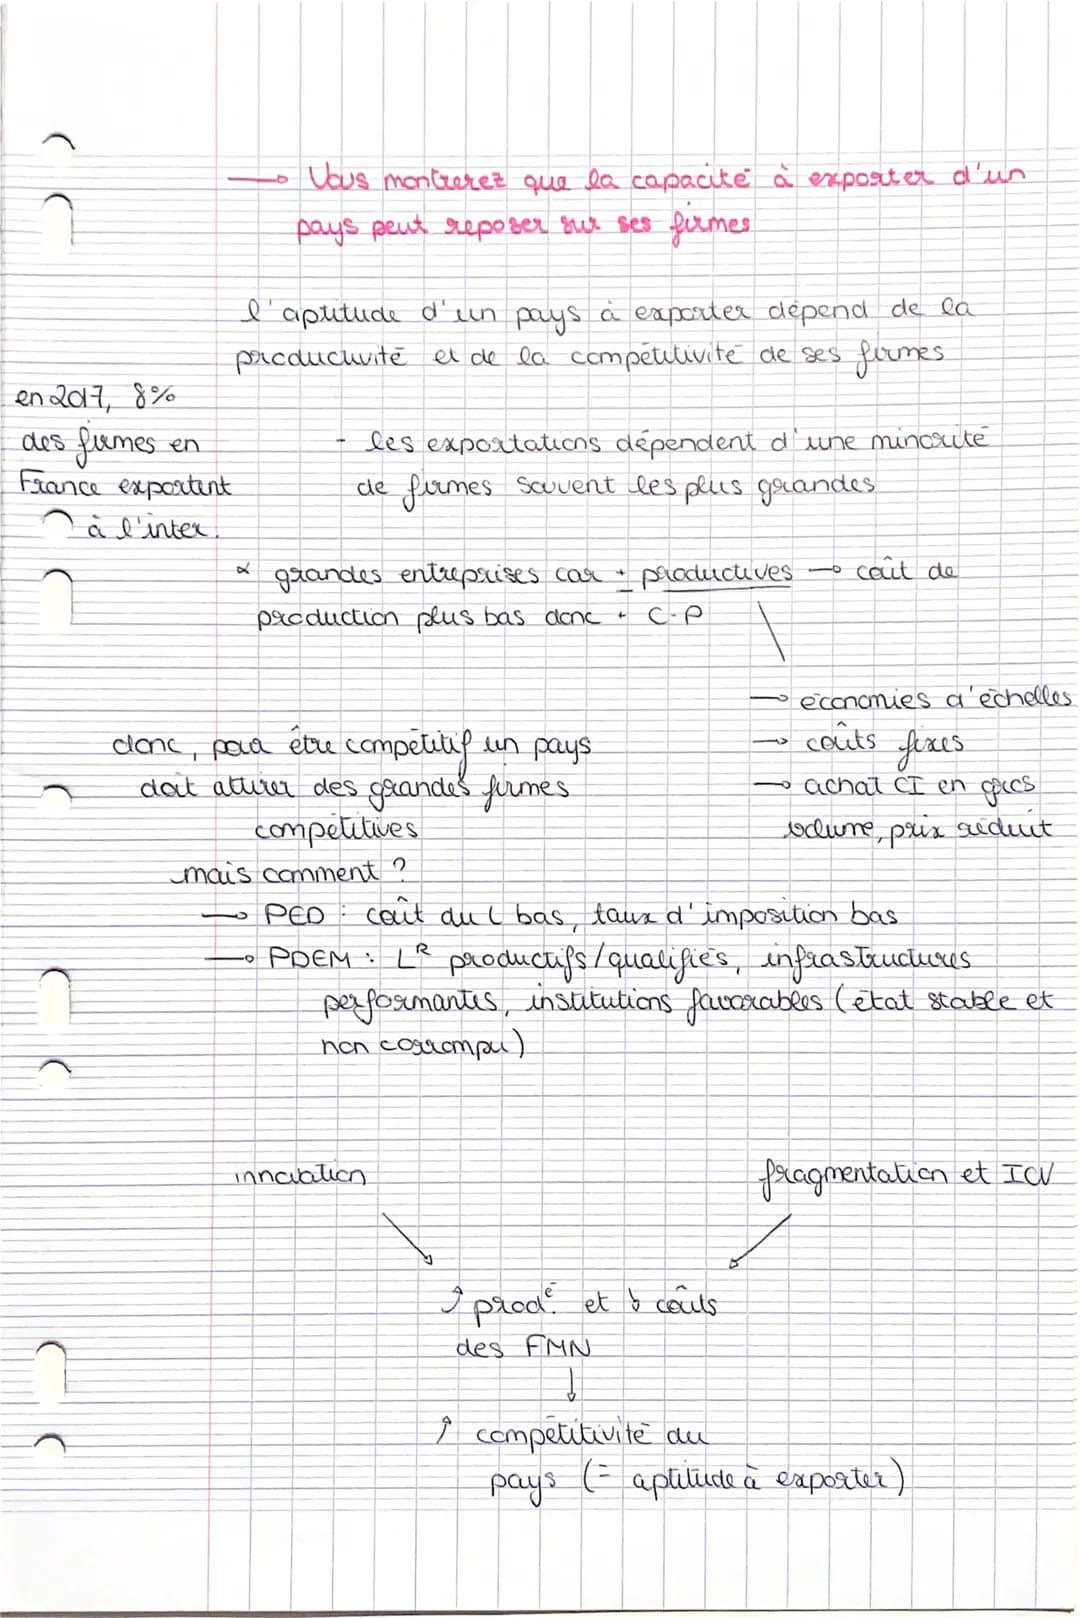 → Vous montrerez que la capacité à exporter d'un
pays peut reposer sur ses firmes
l'aptitude d'un pays à exporter dépend de la
productivité et de la compétitivité de ses firmes
en 2017, 8%
des firmes en
France exportent
à l'inter.
- les exportations dépendent d'une minorité
de firmes souvent les plus grandes
∝ grandes entreprises car + productives → coût de
production plus bas donc + C-P
→ économies d'échelles
→ coûts fixes
→ achat CI en gros
volume, prix réduit
donc, pour être compétitif un pays
doit attirer des grandes firmes
compétitives
mais comment ?
→ PED : coût du L bas, taux d'imposition bas
→ PDEM : LR productifs/qualifiés, infrastructures
performantes, institutions favorables (état stable et
non corrompu)
innovation
fragmentation et ICV
↑ prodé et ↓ coûts
des FMN
↓
↑ compétitivité du
pays (= aptitude à exporter)